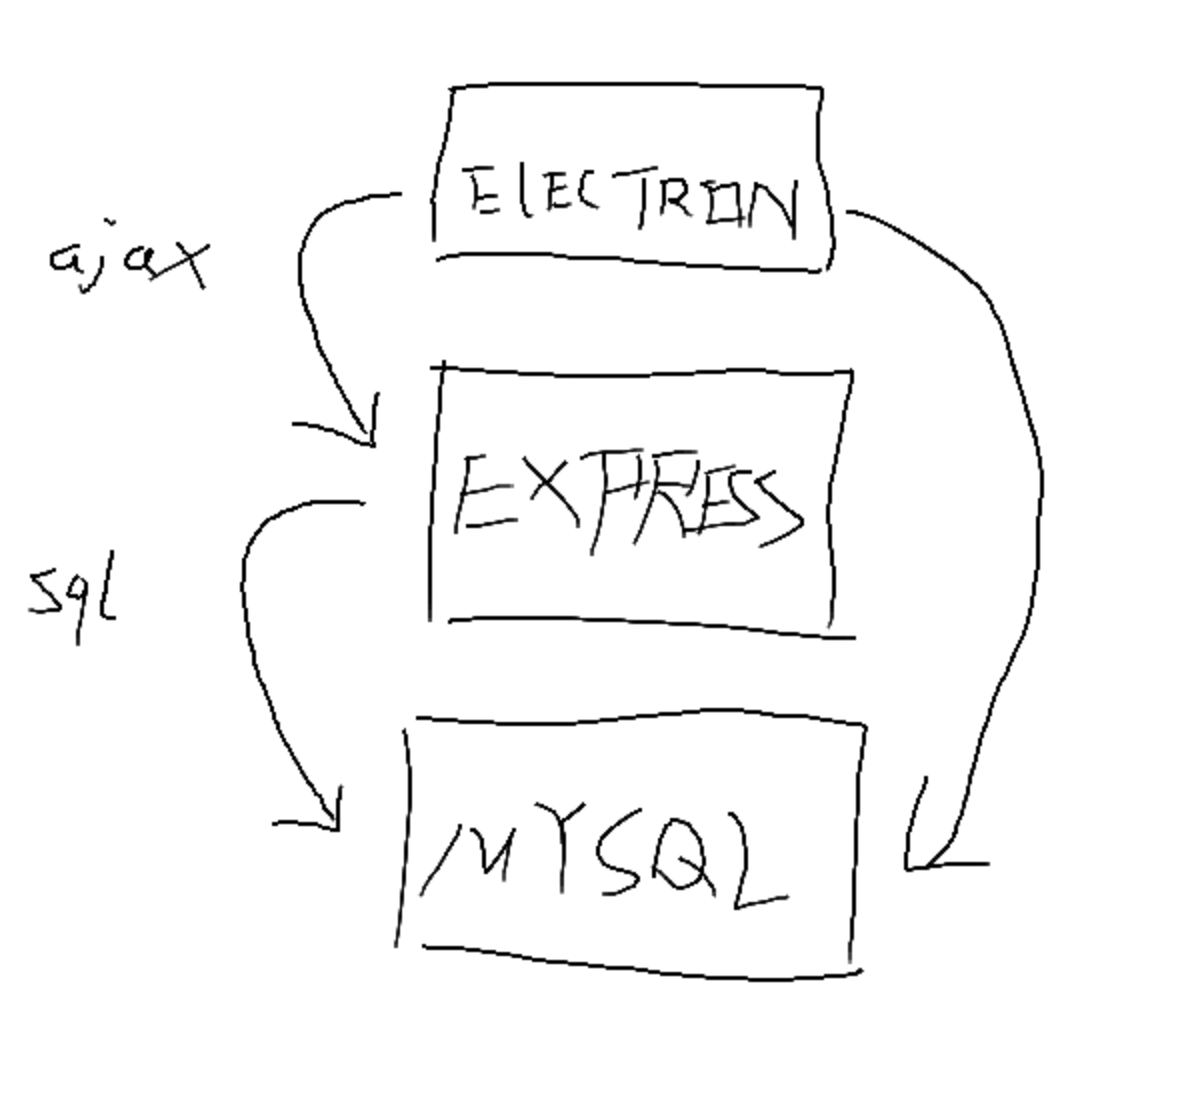 ElECTRON
ajax
EXPRESS
sql
MYSQL